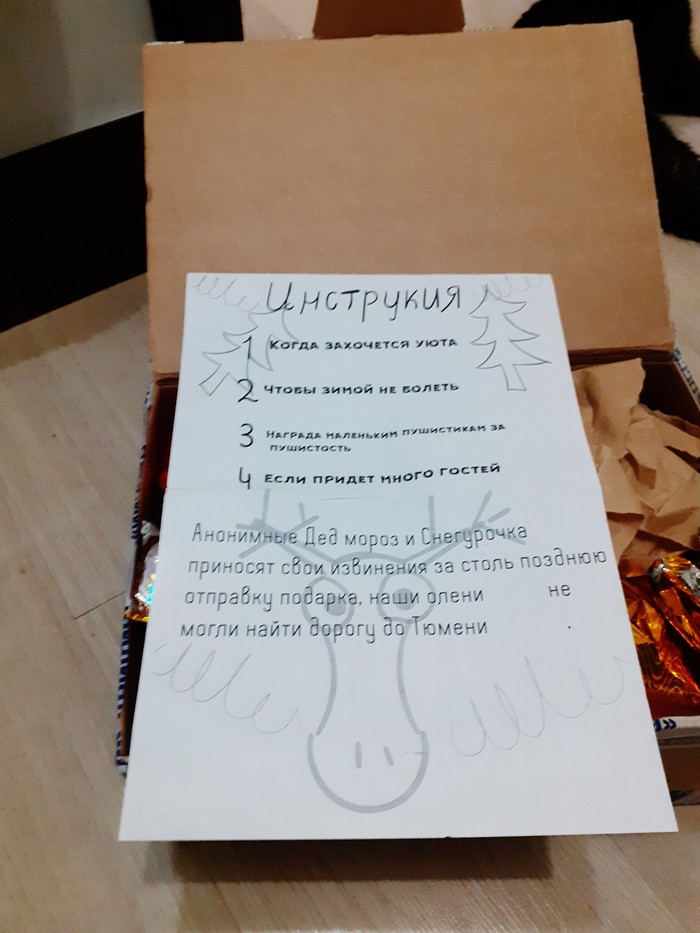 Инструкия
1 Когда захочется уюта
2 Чтобы зимой не болеть
3 Награда маленьким пушистикам за
пушистость
4 Если придет много гостей
Анонимные Дед мороз и Снегурочка
приносят свои извинения за столь позднюю
отправку подарка, наши олени не
могли найти дорогу до Тюмени .